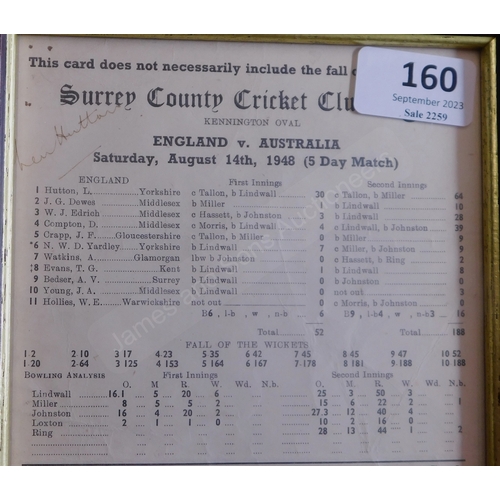 This card does not necessarily include the fall o
160
September 2023
Sale 2259
Surrey County Cricket Clu
KENNINGTON OVAL
Len Hutton
ENGLAND v. AUSTRALIA
Saturday, August 14th, 1948 (5 Day Match)
ENGLAND First Innings Second Innings
1 Hutton, L. Yorkshire c Tallon, b Lindwall 30 c Tallon, b Miller 64
2 J. G. Dewes Middlesex b Miller 1 b Lindwall 10
3 W. J. Edrich Middlesex c Hassett, b Johnston 3 b Lindwall 28
4 Compton, D. Middlesex c Morris, b Lindwall 4 c Lindwall, b Johnston 39
5 Crapp, J. F. Gloucestershire c Tallon, b Miller 0 b Miller 9
*6 N. W. D. Yardley Yorkshire b Lindwall 7 c Miller, b Johnston 9
7 Watkins, A. Glamorgan lbw b Johnston 0 c Hassett, b Ring 2
§8 Evans, T. G. Kent b Lindwall 1 b Lindwall 8
9 Bedser, A. V. Surrey b Lindwall 0 b Lindwall 0
10 Young, J. A. Middlesex b Lindwall 0 not out 3
11 Hollies, W. E. Warwickshire not out 0 c Morris, b Johnston 0
B6 , l-b , w , n-b 6 B9 , l-b4 , w , n-b3 16
Total 52 Total 188
FALL OF THE WICKETS
1 2 2 10 3 17 4 23 5 35 6 42 7 45 8 45 9 47 10 52
1 20 2-64 3 125 4 153 5 164 6 167 7-178 8 181 9 188 10 188
BOWLING ANALYSIS First Innings Second Innings
O. M. R. W. Wd. N.b. O. M. R. W. Wd. N.b.
Lindwall 16.1 5 20 6 25 3 50 3 1
Miller 8 5 5 2 15 6 22 2 1
Johnston 16 4 20 2 27.3 12 40 4
Loxton 2 1 1 0 10 2 16 0
Ring 28 13 44 1 2